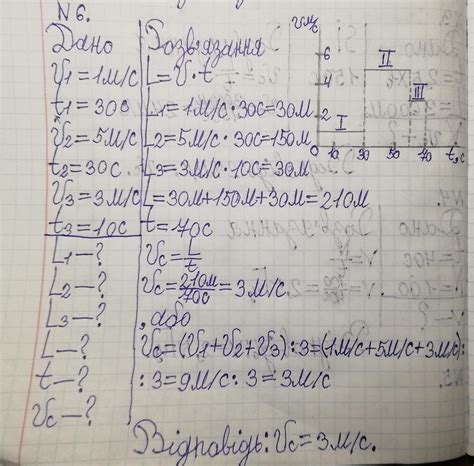 N 6.
Дано
V1 = 1м/с
t1 = 30с
V2 = 5м/с
t2 = 30с.
V3 = 3м/с
t3 = 10с
L1 — ?
L2 — ?
L3 — ?
L — ?
t — ?
Vc — ?
Розв'язання
L = V · t
L1 = 1м/с · 30с = 30м
L2 = 5м/с · 30с = 150м
L3 = 3м/с · 10с = 30м
L = 30м + 150м + 30м = 210м
t = 70с
Vc = L/t
Vc = 210м/70с = 3м/с
, або
Vc = (V1 + V2 + V3) : 3 = (1м/с + 5м/с + 3м/с) :
: 3 = 9м/с : 3 = 3м/с
Відповідь: Vc = 3м/с.
6
II
4
III
2
I
0 10 30 50 70 t,c